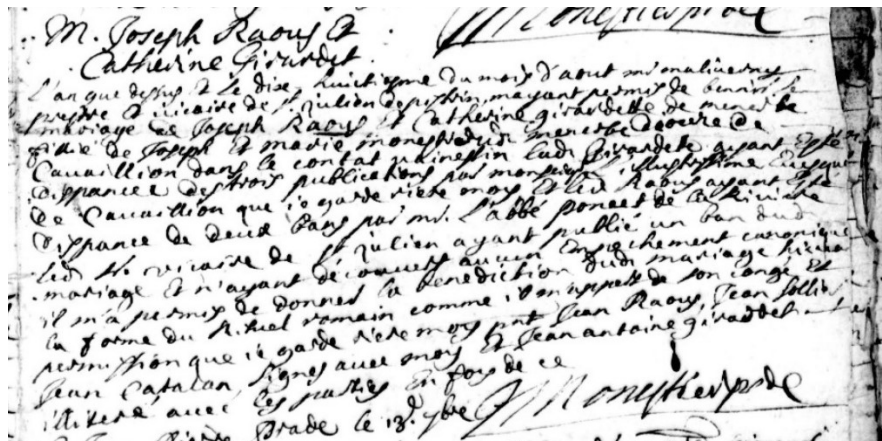 M. Joseph Raoux Et
Catherine Girardet.
L'an que dessus Et Le dixe huictiesme du mois d'aout mr malivernus
prestre Et vicaire de St. Julien de peirin, mayant permis de benir le
mariage de Joseph Raoux Et Catherine girardette de menerbe
fille de Joseph Et marie monestier du menerbe diocese de
Cavaillion dans le contat ludi Girardete ayant Esté
dispancée des trois publications par monseig. L'illustrissime Evesque
de Cavaillion que ie garde riere moy Et led. Raoux ayant Esté
dispancé de deux bans par mr. L'abbé poncet de la Riviere
ledi Sr. vicaire de St Julien ayant publié un ban dud
mariage Et n'ayant découvert aucun Empechement canonique
il m'a permis de donner la benediction dudi mariage
la forme du Rituel romain comme il m'appert de son congé Et
permission que ie garde riere moy pnt Jean Raoux, Jean Sollier
Jean Catalan signes avec moy Et Jean antoine girardet
illiteré avec les parties En foy de ce
Monestier pbre
Prade le 13e. 9bre